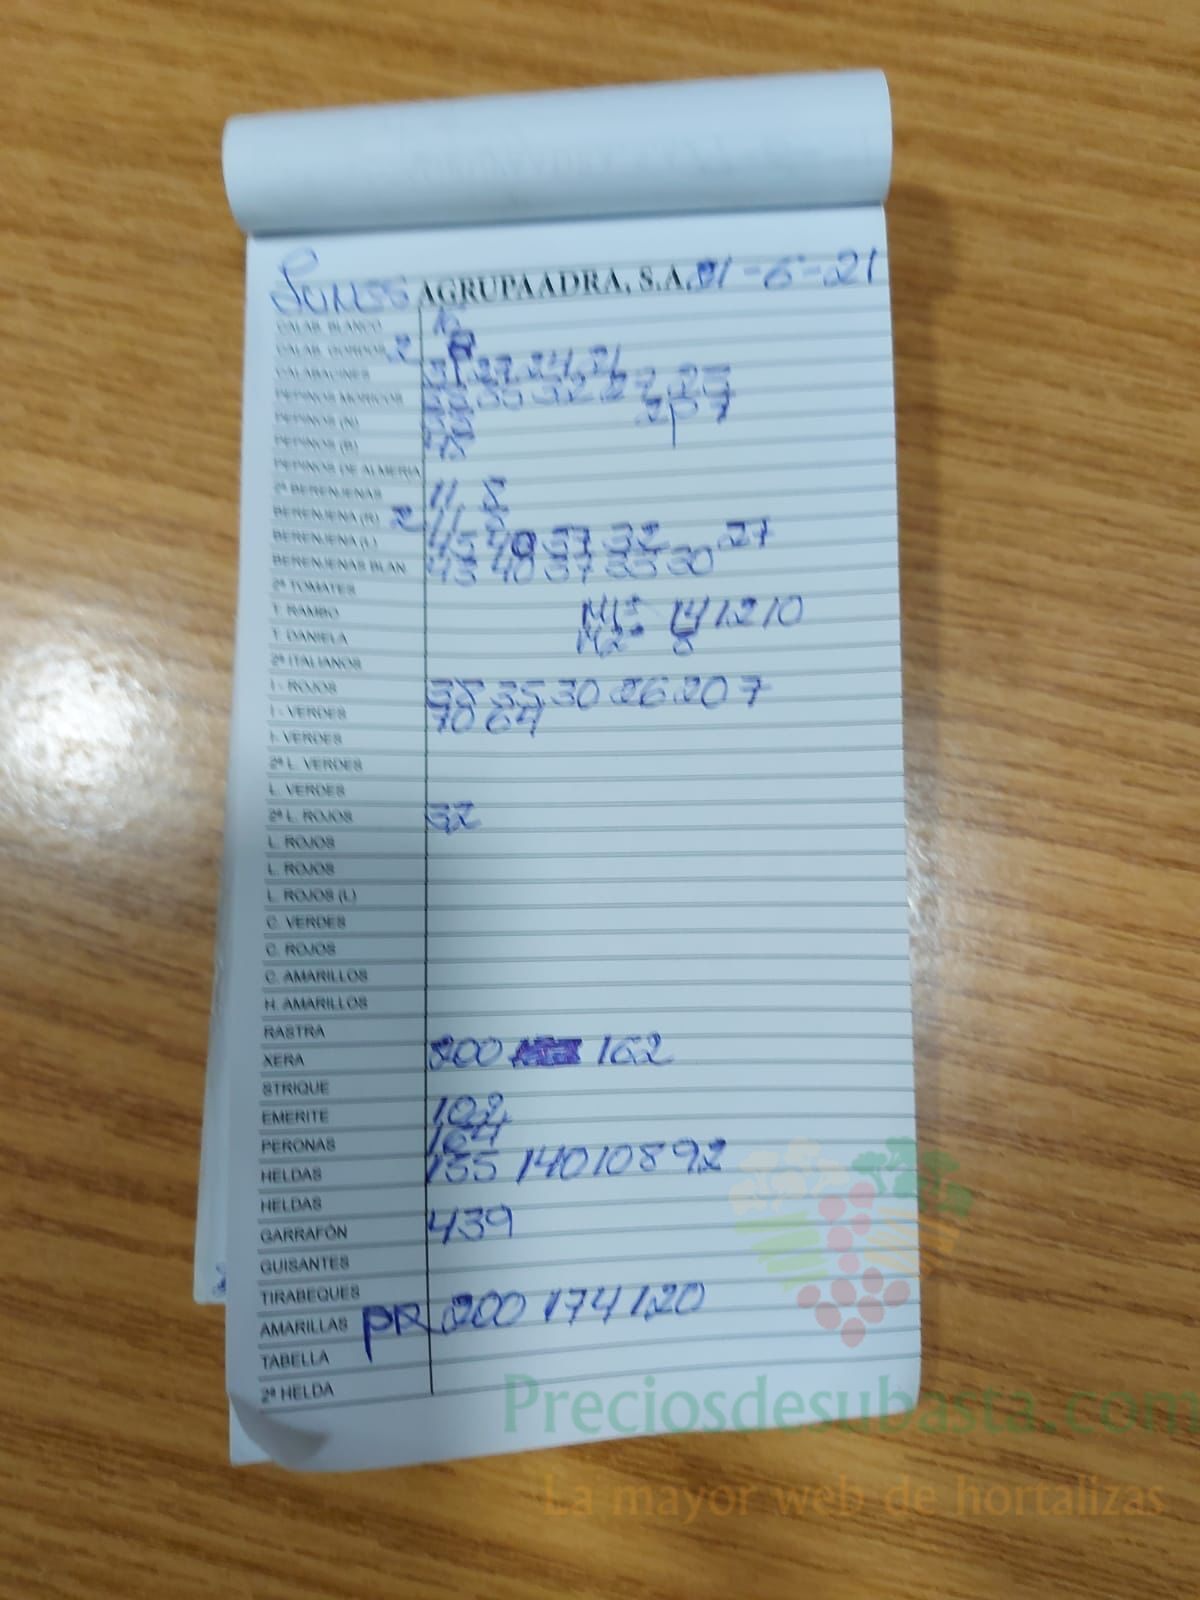 Lunes AGRUPAADRA, S.A. 21-6-21
CALAB. BLANCO 15
CALAB. GORDOS 2 8
CALABACINES 31 27 24 21
PEPINOS MORICOS 32 27 23
PEPINOS (N) 2P 7
PEPINOS (B)
PEPINOS DE ALMERIA
2ª BERENJENAS 11 8
BERENJENA (R) 2 11 8
BERENJENA (L) 45 40 37 32 27
BERENJENAS BLAN. 43 40 37 33 30
2ª TOMATES
T. RAMBO M1ª 14 12 10
T. DANIELA M2ª 8
2ª ITALIANOS
I - ROJOS 38 35 30 26 20 7
I - VERDES 70 64
I- VERDES
2ª L. VERDES
L. VERDES
2ª L. ROJOS 32
L. ROJOS
L. ROJOS
L. ROJOS (L)
C. VERDES
C. ROJOS
C. AMARILLOS
H. AMARILLOS
RASTRA
XERA 200 162
STRIQUE
EMERITE 102
PERONAS 164
HELDAS 155 140 108 92
HELDAS
GARRAFÓN 439
GUISANTES
TIRABEQUES
AMARILLAS PR 200 174 120
TABELLA
2ª HELDA
Preciosdesubasta.com
La mayor web de hortalizas